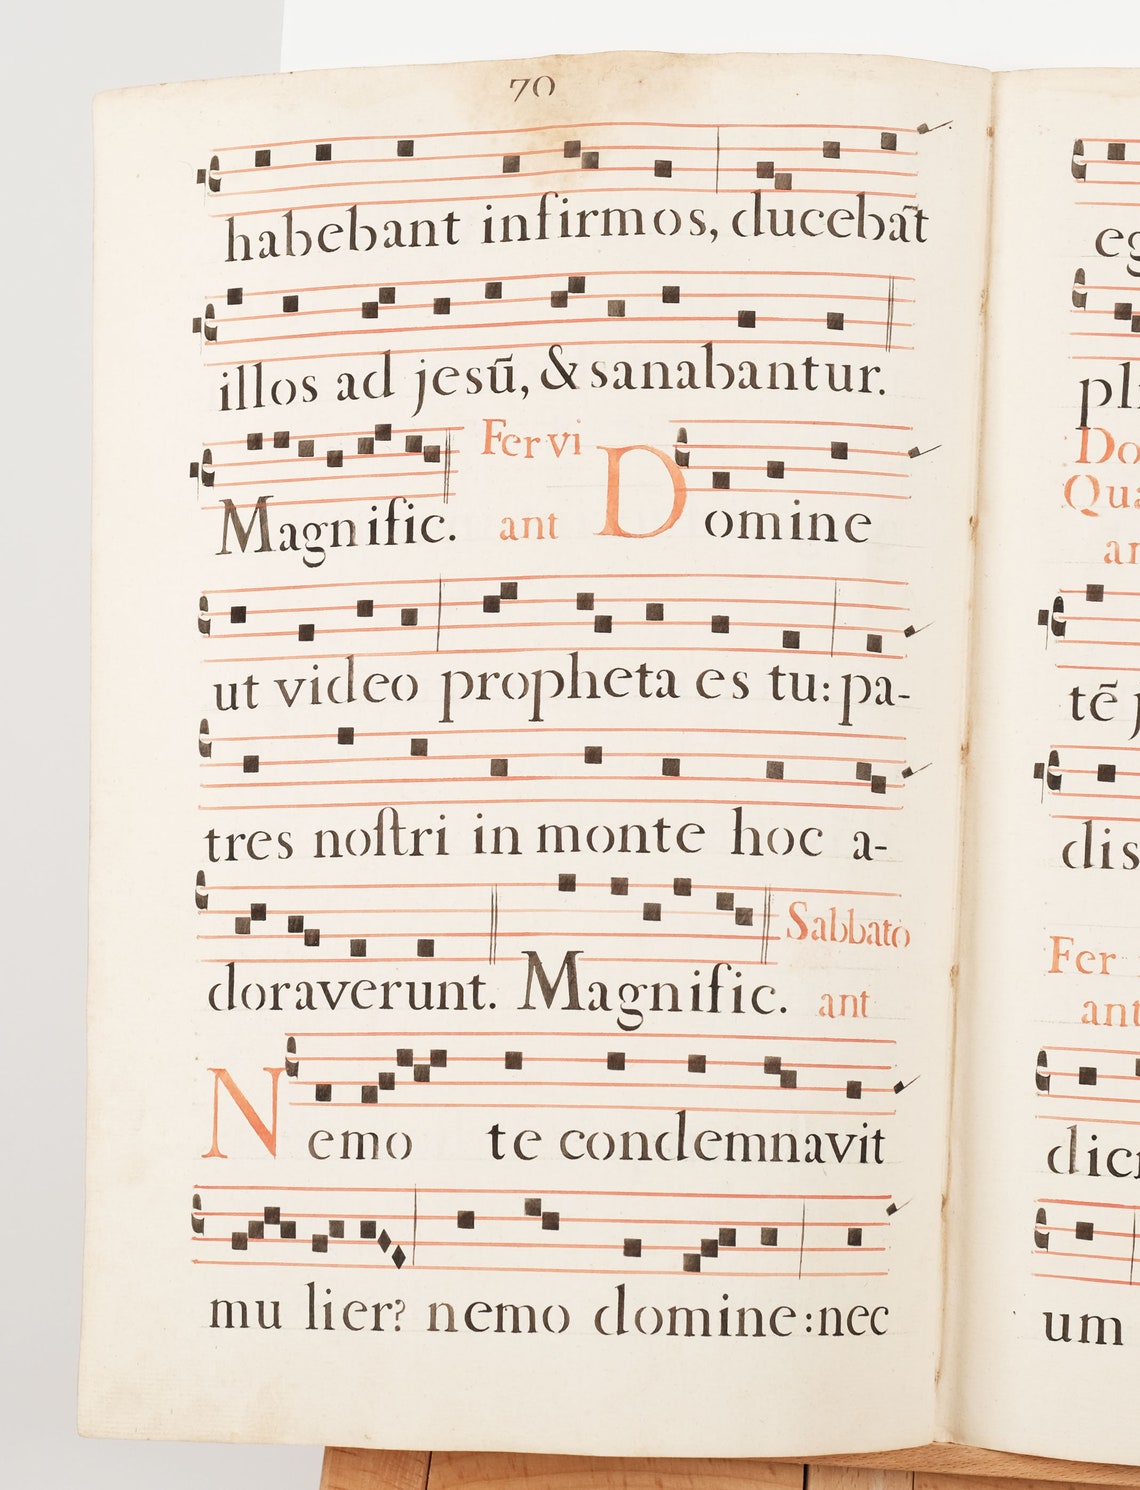 70
habebant infirmos, ducebāt
illos ad jesū, & sanabantur.
Magnific. Fer vi ant Domine
ut video propheta es tu: pa-
tres noſtri in monte hoc a-
doraverunt. Magnific. Sabbato ant
Nemo te condemnavit
mu lier? nemo domine: nec
Do
Qua
tē
dis
Fer
ant
um